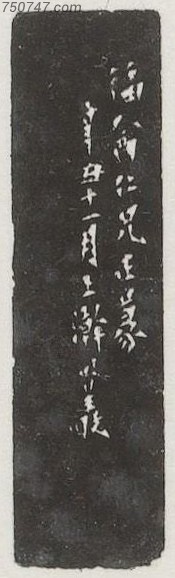 750747.com
福仁兄正篆
辛丑十一月王瀚